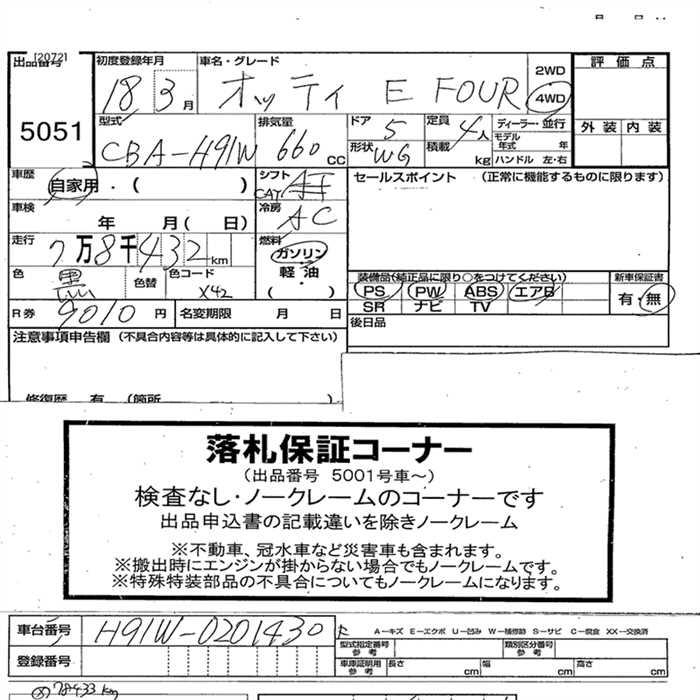 [2072]
出品番号 初度登録年月 車名・グレード 2WD 評価点
18 3月 オッティ E FOUR 4WD
5051 型式 排気量 ドア 定員 ディーラー・並行 外装 内装
CBA-H91W 660 CC 5 4人 モデル年式 年
形状 WG 積載 kg ハンドル 左・右
車歴 自家用・( ) シフト セールスポイント (正常に機能するものに限ります)
車検 年 月( 日) 冷房 AC
走行 7万8千432km 燃料 ガソリン
軽油
( )
色 黒 色替 色コード X42 装備品(純正品に限り○をつけてください) 新車保証書
PS PW ABS エアB 有・無
SR ナビ TV
R券 9010円 名変期限 月 日 後日品
注意事項申告欄 (不具合内容等は具体的に記入して下さい)
修復歴 有 (箇所 )
落札保証コーナー
(出品番号 5001号車～)
検査なし・ノークレームのコーナーです
出品申込書の記載違いを除きノークレーム
※不動車、冠水車など災害車も含まれます。
※搬出時にエンジンが掛からない場合でもノークレームです。
※特殊特装部品の不具合についてもノークレームになります。
車台番号 H91W-0201430 A-キズ E-エクボ U-凹み W-補修跡 S-サビ C-腐食 XX-交換済
型式指定番号参考 類別区分番号参考
登録番号 車庫証明用参考 長さ cm 幅 cm 高さ cm
78433km